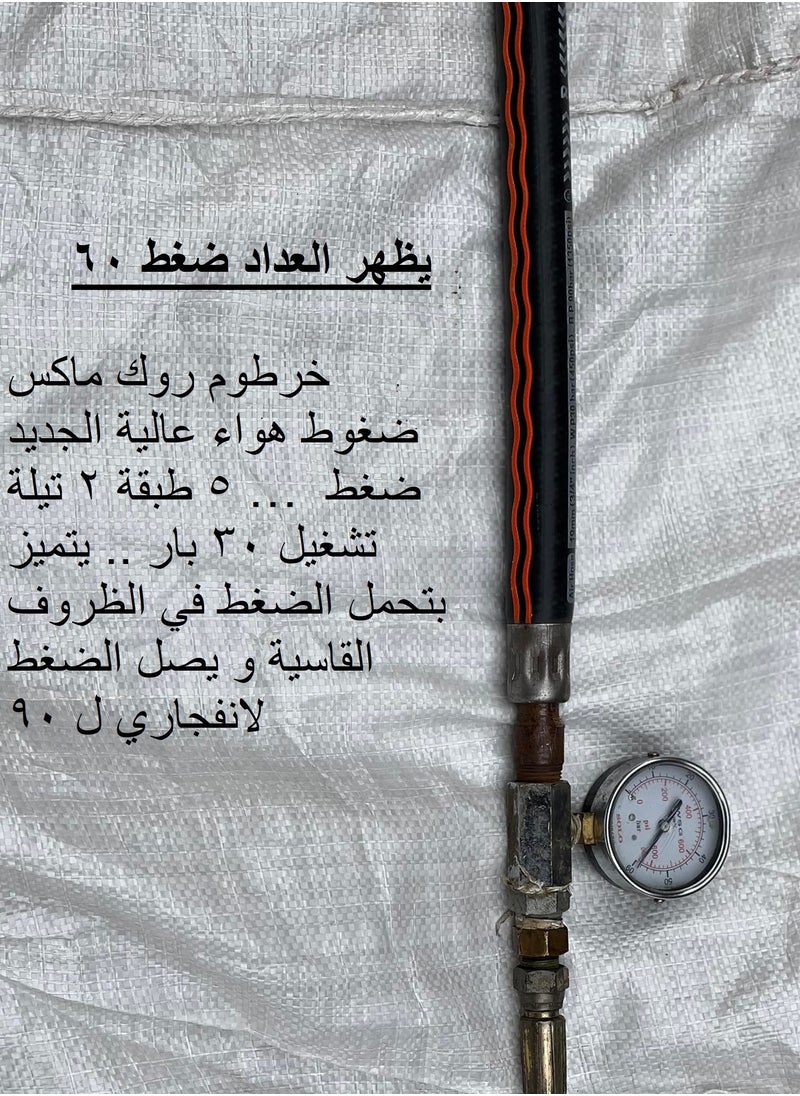 يظهر العداد ضغط ٦٠
خرطوم روك ماكس
ضغوط هواء عالية الجديد
ضغط ... ٥ طبقة ٢ تيلة
تشغيل ٣٠ بار .. يتميز
بتحمل الضغط في الظروف
القاسية و يصل الضغط
لانفجاري ل ٩٠
Air Hose 19mm (3/4" inch) W.P30 bar (450psi) B.P 90bar (1350psi)
0
200
400
600
800
30
40
50
60
psi
bar
WSG
SOLO